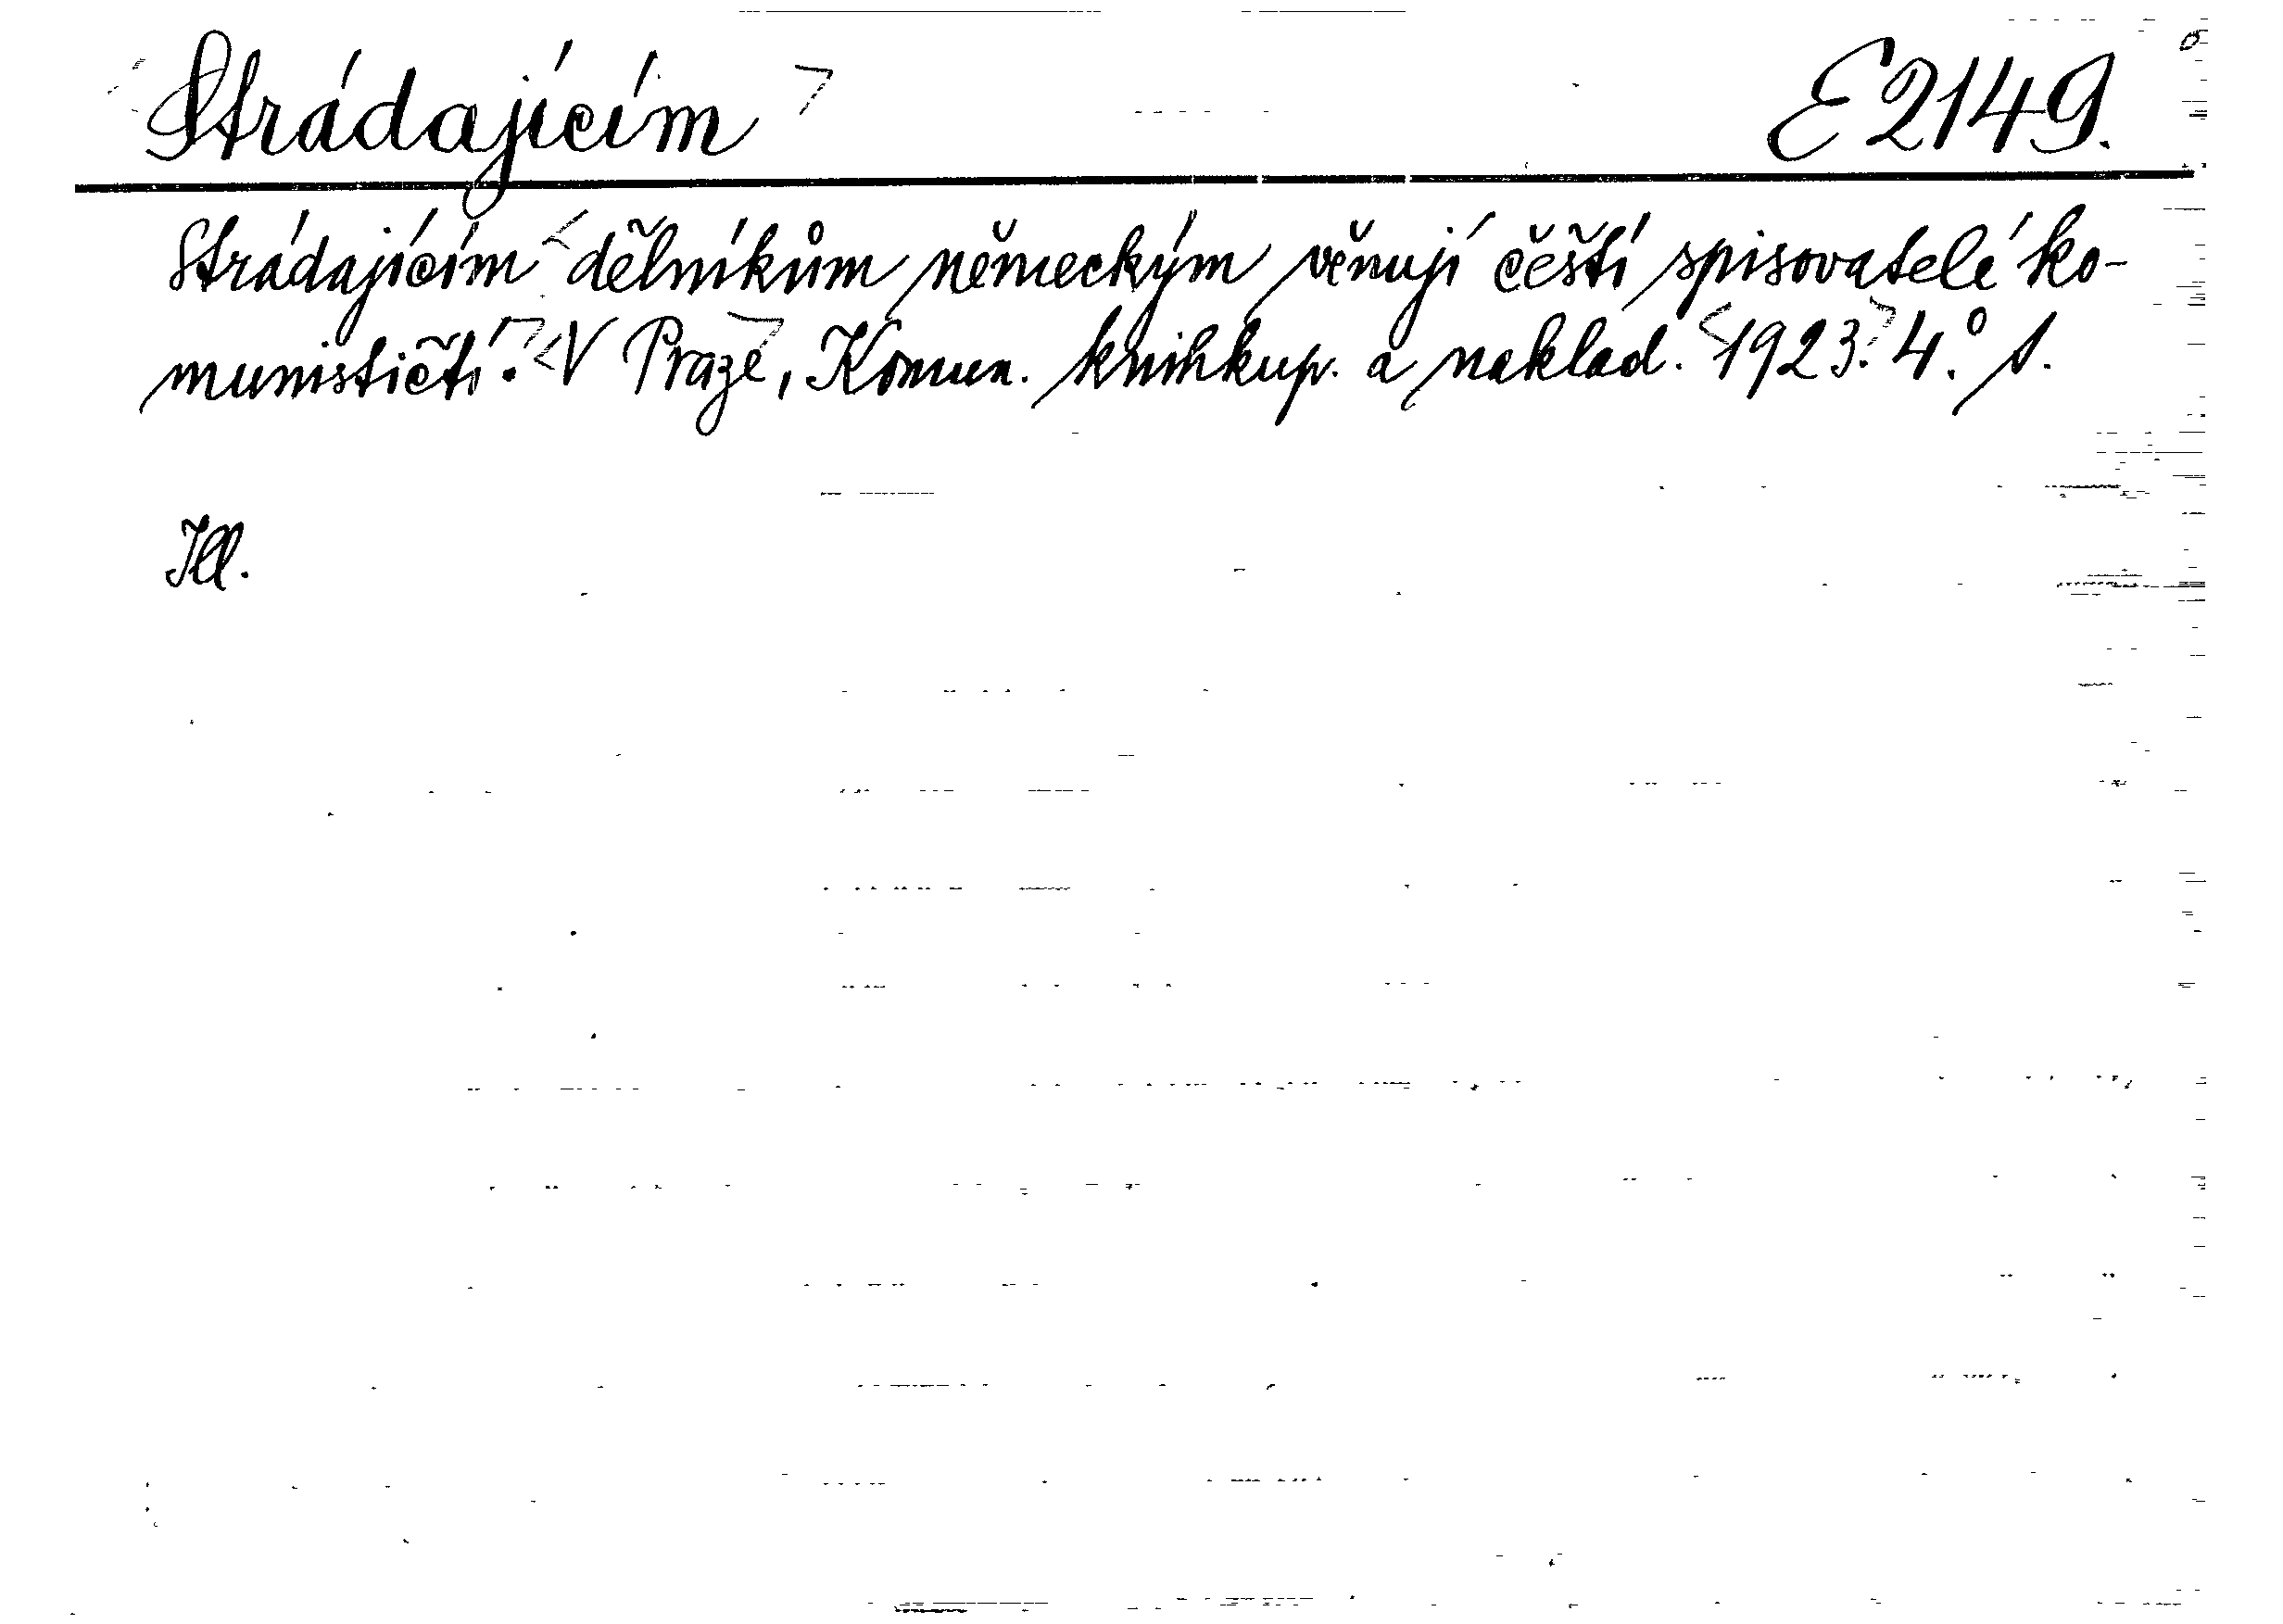 Strádajícím E 2149.
Strádajícím dělníkům německým věnují čeští spisovatelé ko-
munističtí. V Praze, Komun. knihkup. a naklad. 1923. 4.° s.
Ill.